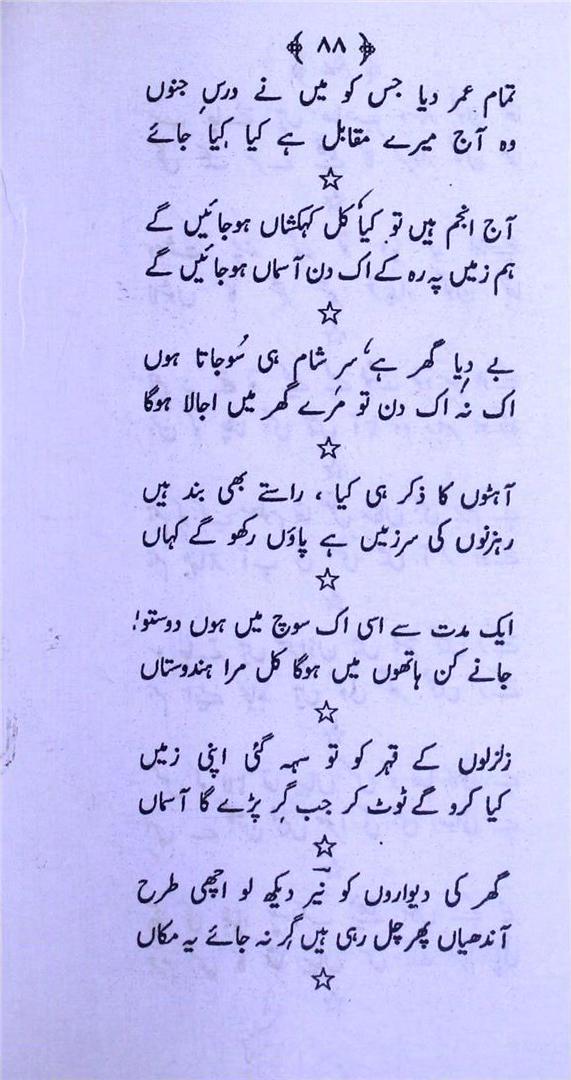 ﴾ ۸۸ ﴿
تمام عمر دیا جس کو میں نے درسِ جنوں
وہ آج میرے مقابل ہے کیا کِیا جائے
☆
آج انجم ہیں تو کیا، کل کہکشاں ہوجائیں گے
ہم زمیں پہ رہ کے اک دن آسماں ہوجائیں گے
☆
بے دِیا گھر ہے، سرِ شام ہی سُوجاتا ہوں
اک نہ اک دن تو مرے گھر میں اجالا ہوگا
☆
آہٹوں کا ذکر ہی کیا ، راستے بھی بند ہیں
رہزنوں کی سرزمیں ہے پاؤں رکھو گے کہاں
☆
ایک مدت سے اسی اک سوچ میں ہوں دوستو!
جانے کن ہاتھوں میں ہوگا کل مرا ہندوستاں
☆
زلزلوں کے قہر کو تو سہہ گئی اپنی زمیں
کیا کرو گے ٹوٹ کر جب گِر پڑے گا آسماں
☆
گھر کی دیواروں کو نیّر دیکھ لو اچھی طرح
آندھیاں پھر چل رہی ہیں گِر نہ جائے یہ مکاں
☆